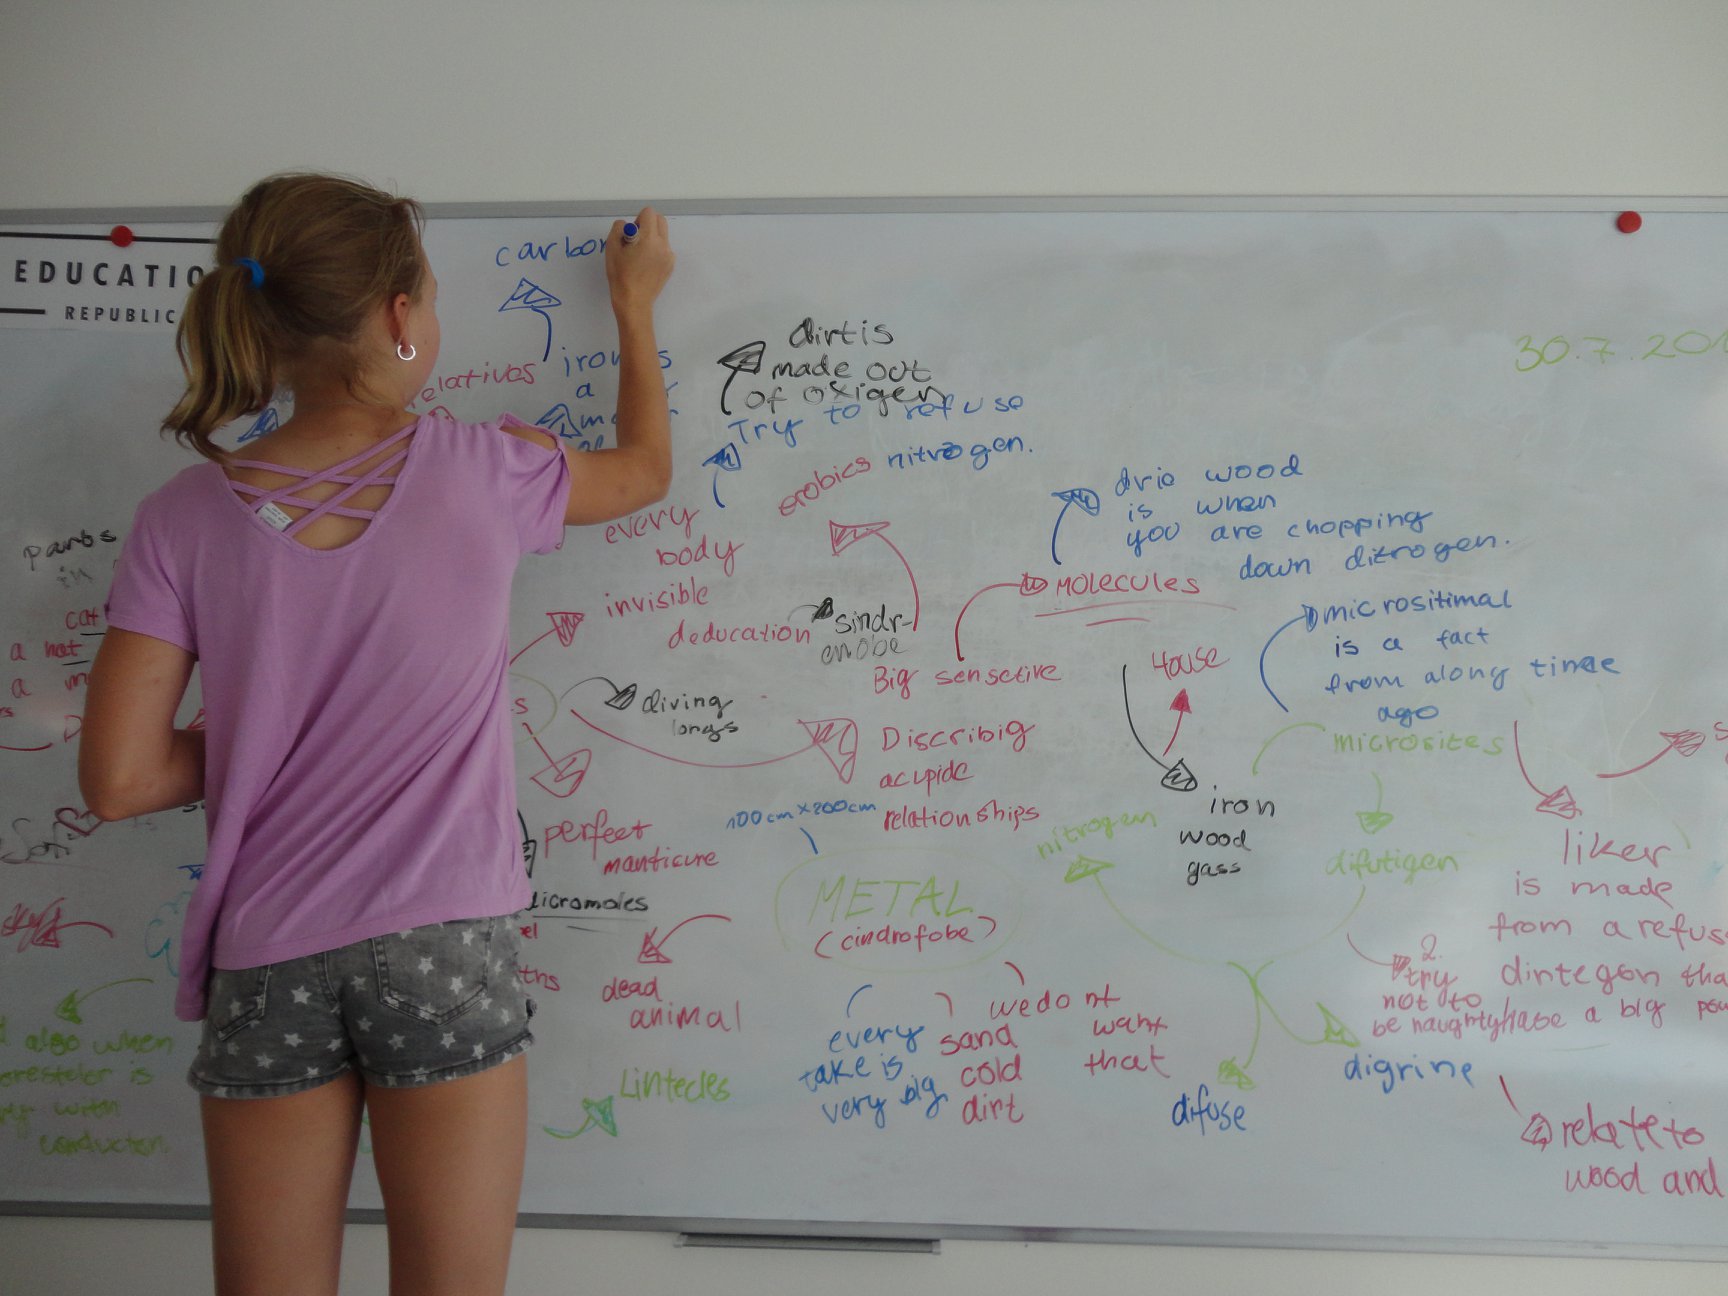 EDUCATIO
REPUBLIC
carbon
30.7.201
dirt is
made out
of oxigen
elatives
iron is
a
Try to refuse
nitrogen.
erobics
every
body
invisible
deducation
sindr-
enobe
Big sensetive
drie wood
is when
you are chopping
down ditrogen.
MOLECULES
micrositimal
is a fact
from along timee
ago
microsites
House
parts
in
cat
a hot
a m
diving
longs
Discribig
acupide
relationships
100cm x 200cm
nitrogen
iron
wood
gass
difutigen
liker
is made
from a refus
dintegon tha
hase a big pow
perfect
manticure
dicromoles
METAL
(cindrofobe)
dead
animal
every
take is
very big
sand
cold
dirt
we do nt
want
that
2.
try
not to
be naughty
difuse
digrine
relate to
wood and
Lintecles
also when
orestelor is
with
conducter.